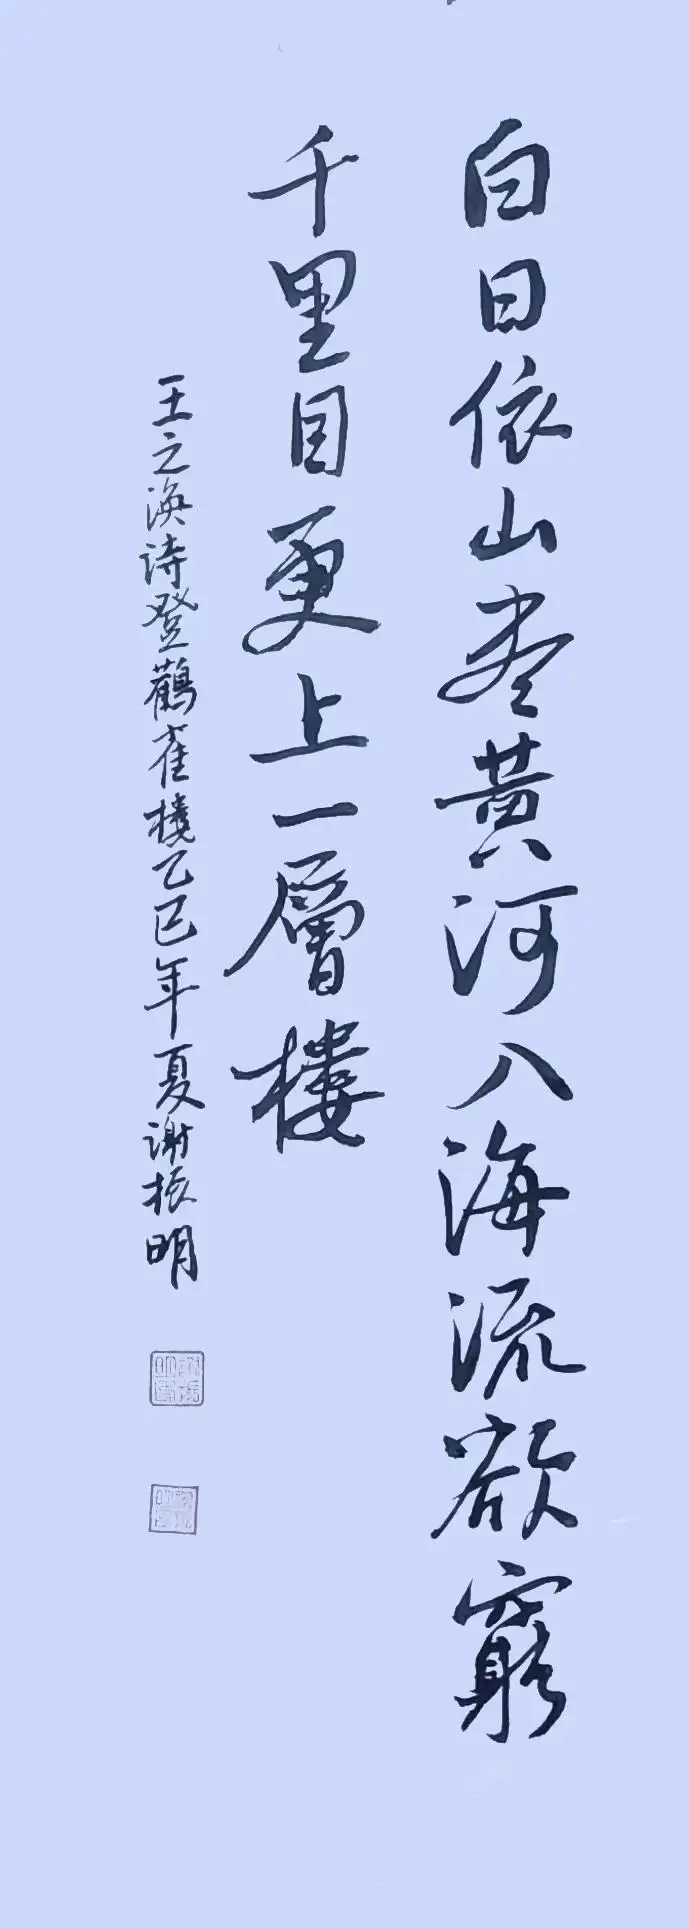 白日依山尽黄河入海流欲窮
千里目更上一層楼
王之涣诗登鸛雀楼乙巳年夏谢振明